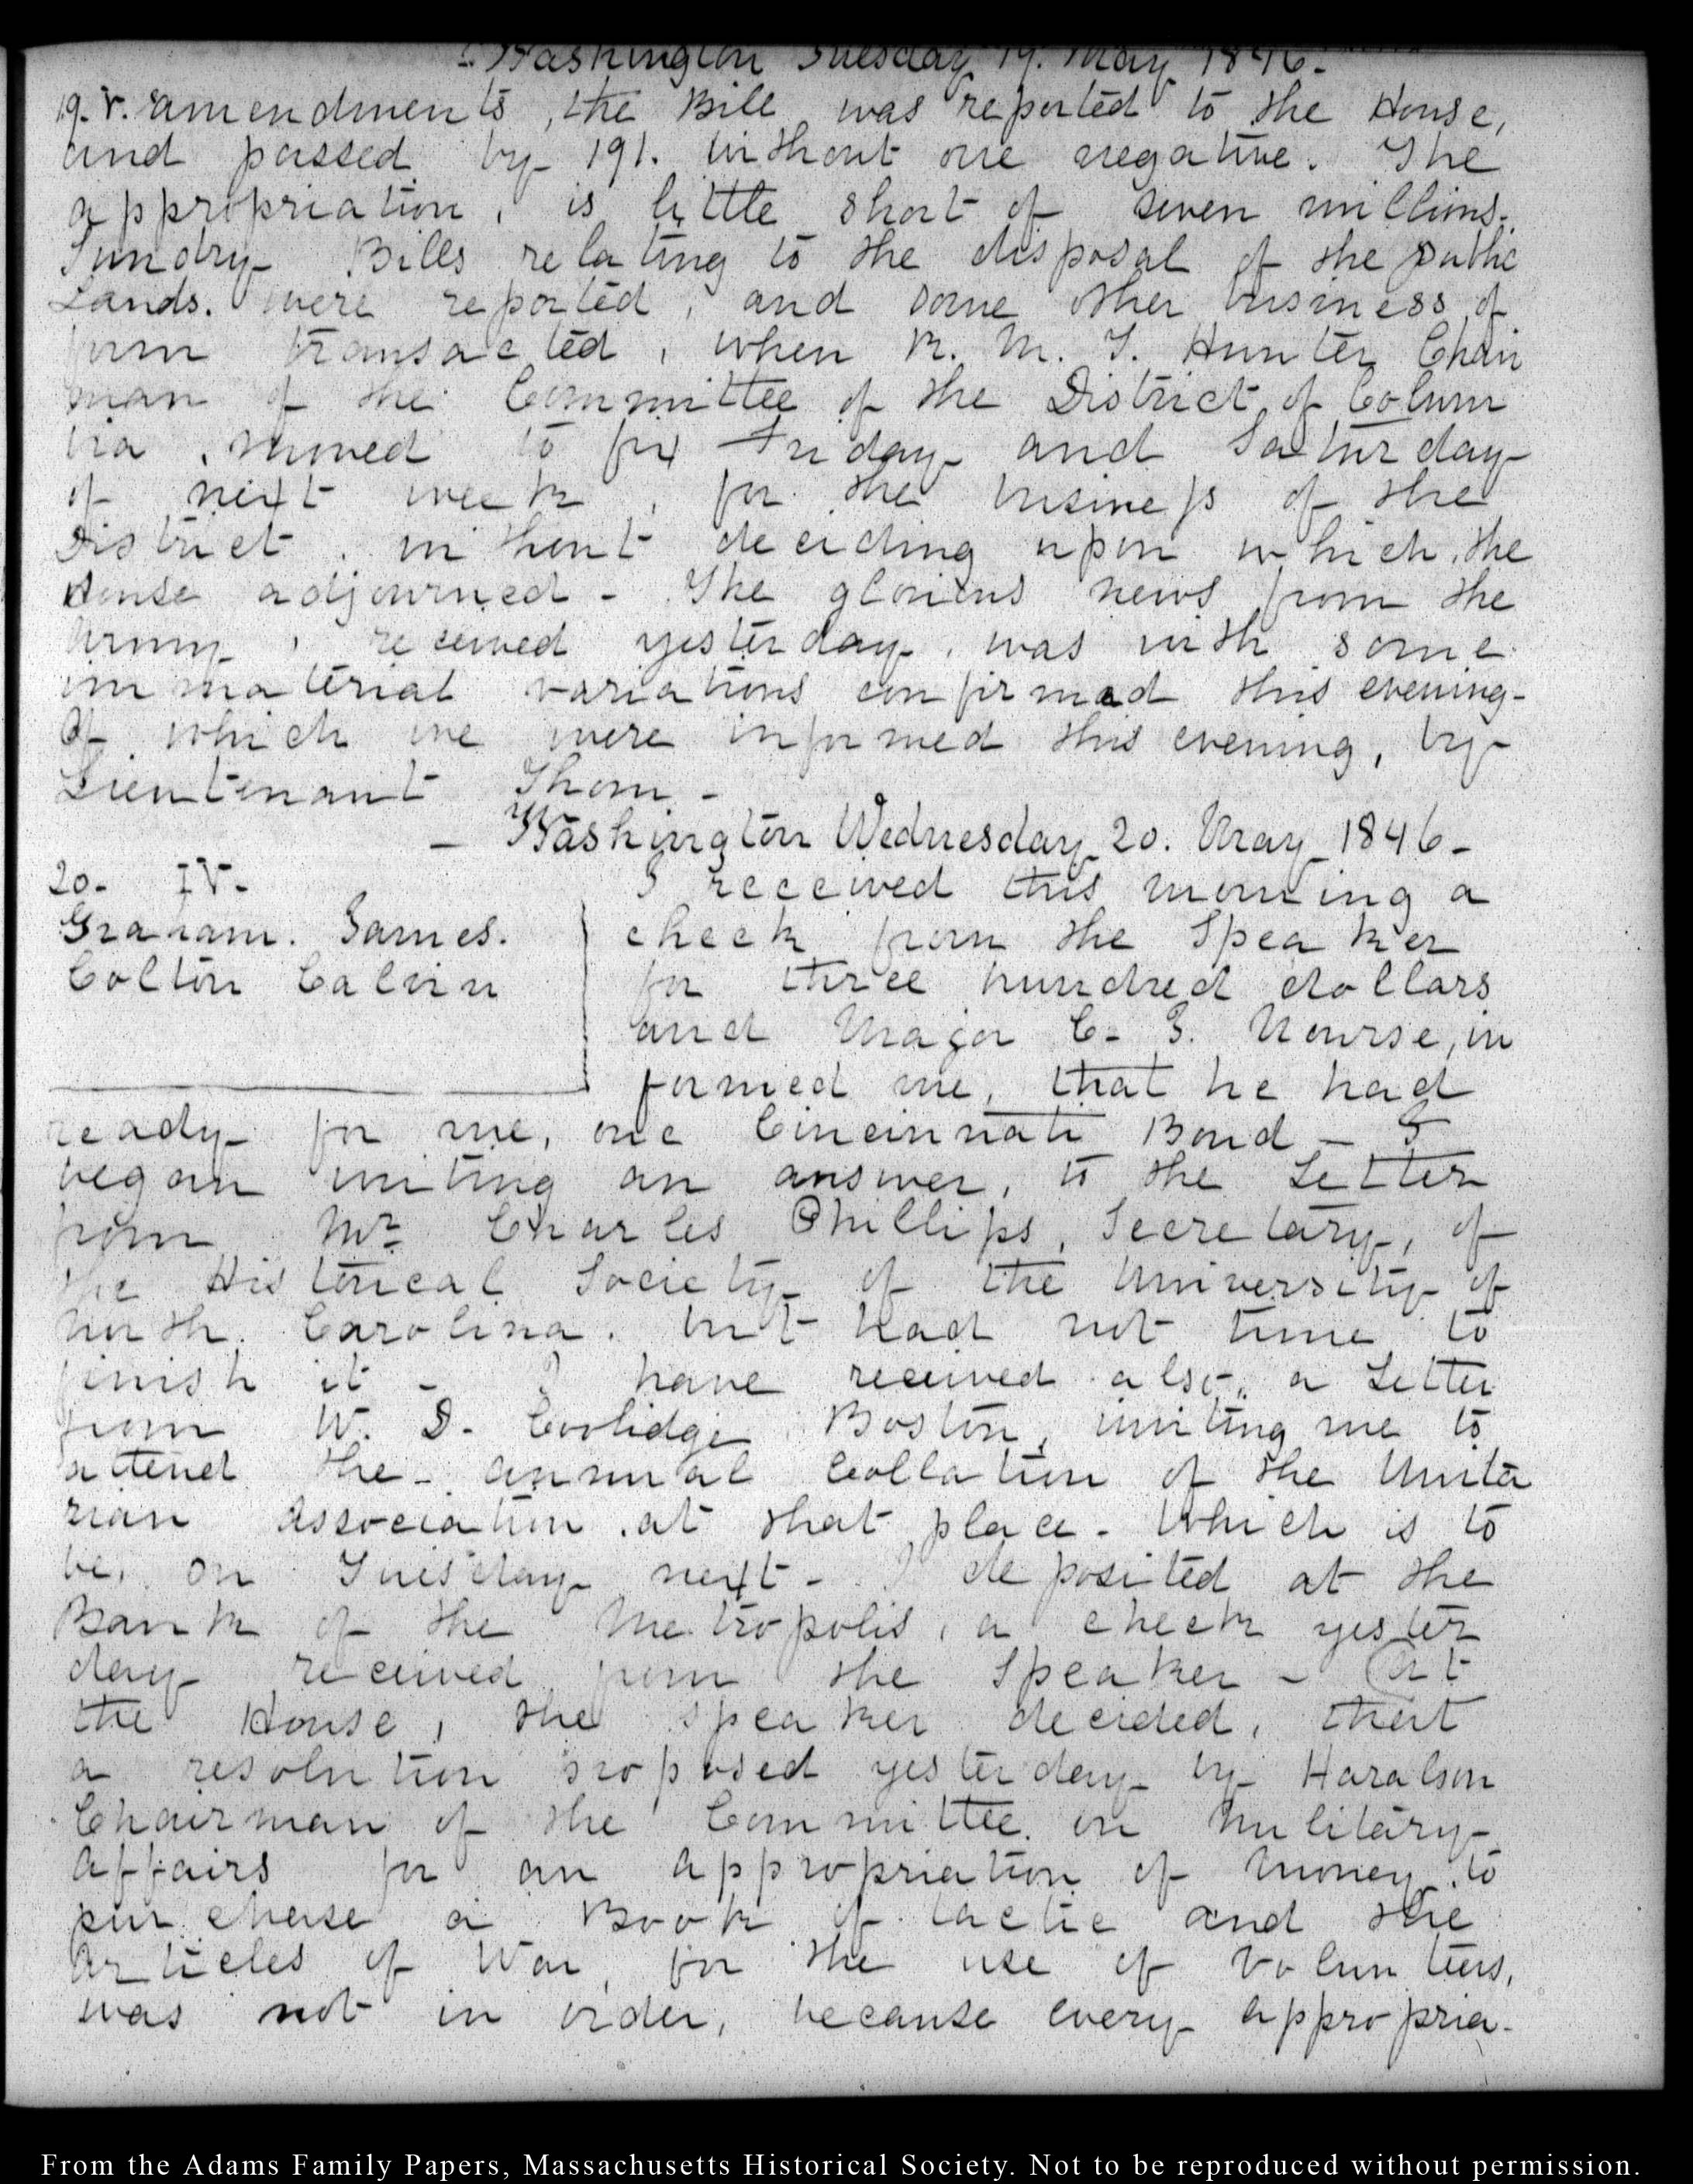 Washington Tuesday 19. May 1846.
19. V. amendments, the Bill was reported to the House,
and passed by 191. without one negative. The
appropriation, is little short of seven millions.
Sundry Bills relating to the disposal of the public
Lands. were reported, and some other business of
form transacted, when R. M. T. Hunter Chair
man of the Committee of the District of Colum
bia, moved to fix Friday and Saturday
of next week, for the business of the
District, without deciding upon which, the
House adjourned - The glorious news from the
army, received yesterday, was with some
immaterial variations confirmed this evening-
Of which we were informed this evening, by
Lieutenant Thom -
- Washington Wednesday 20. May 1846-
20. IV.
Graham. James.
Colton Calvin
I received this morning a
check from the Speaker
for three hundred dollars
and Major C. J. Nourse, in
formed me, that he had
ready for me, one Cincinnati Bond - I
began writing an answer, to the Letter
from Mr Charles Phillips, Secretary, of
the Historical Society of the University of
North. Carolina. but had not time to
finish it - I have received also, a Letter
from W. D. Coolidge Boston, inviting me to
attend the annual Collation of the Unita
rian Association at that place. Which is to
be, on Tuesday next - I deposited at the
Bank of the Metropolis, a check yester
day received from the Speaker - At
the House, the Speaker decided, that
a resolution proposed yesterday by Haralson
Chairman of the Committee on Military
Affairs for an appropriation of money to
purchase a Book of tactic and the
Articles of War, for the use of Volunteers,
was not in order, because every appropria-
From the Adams Family Papers, Massachusetts Historical Society. Not to be reproduced without permission.